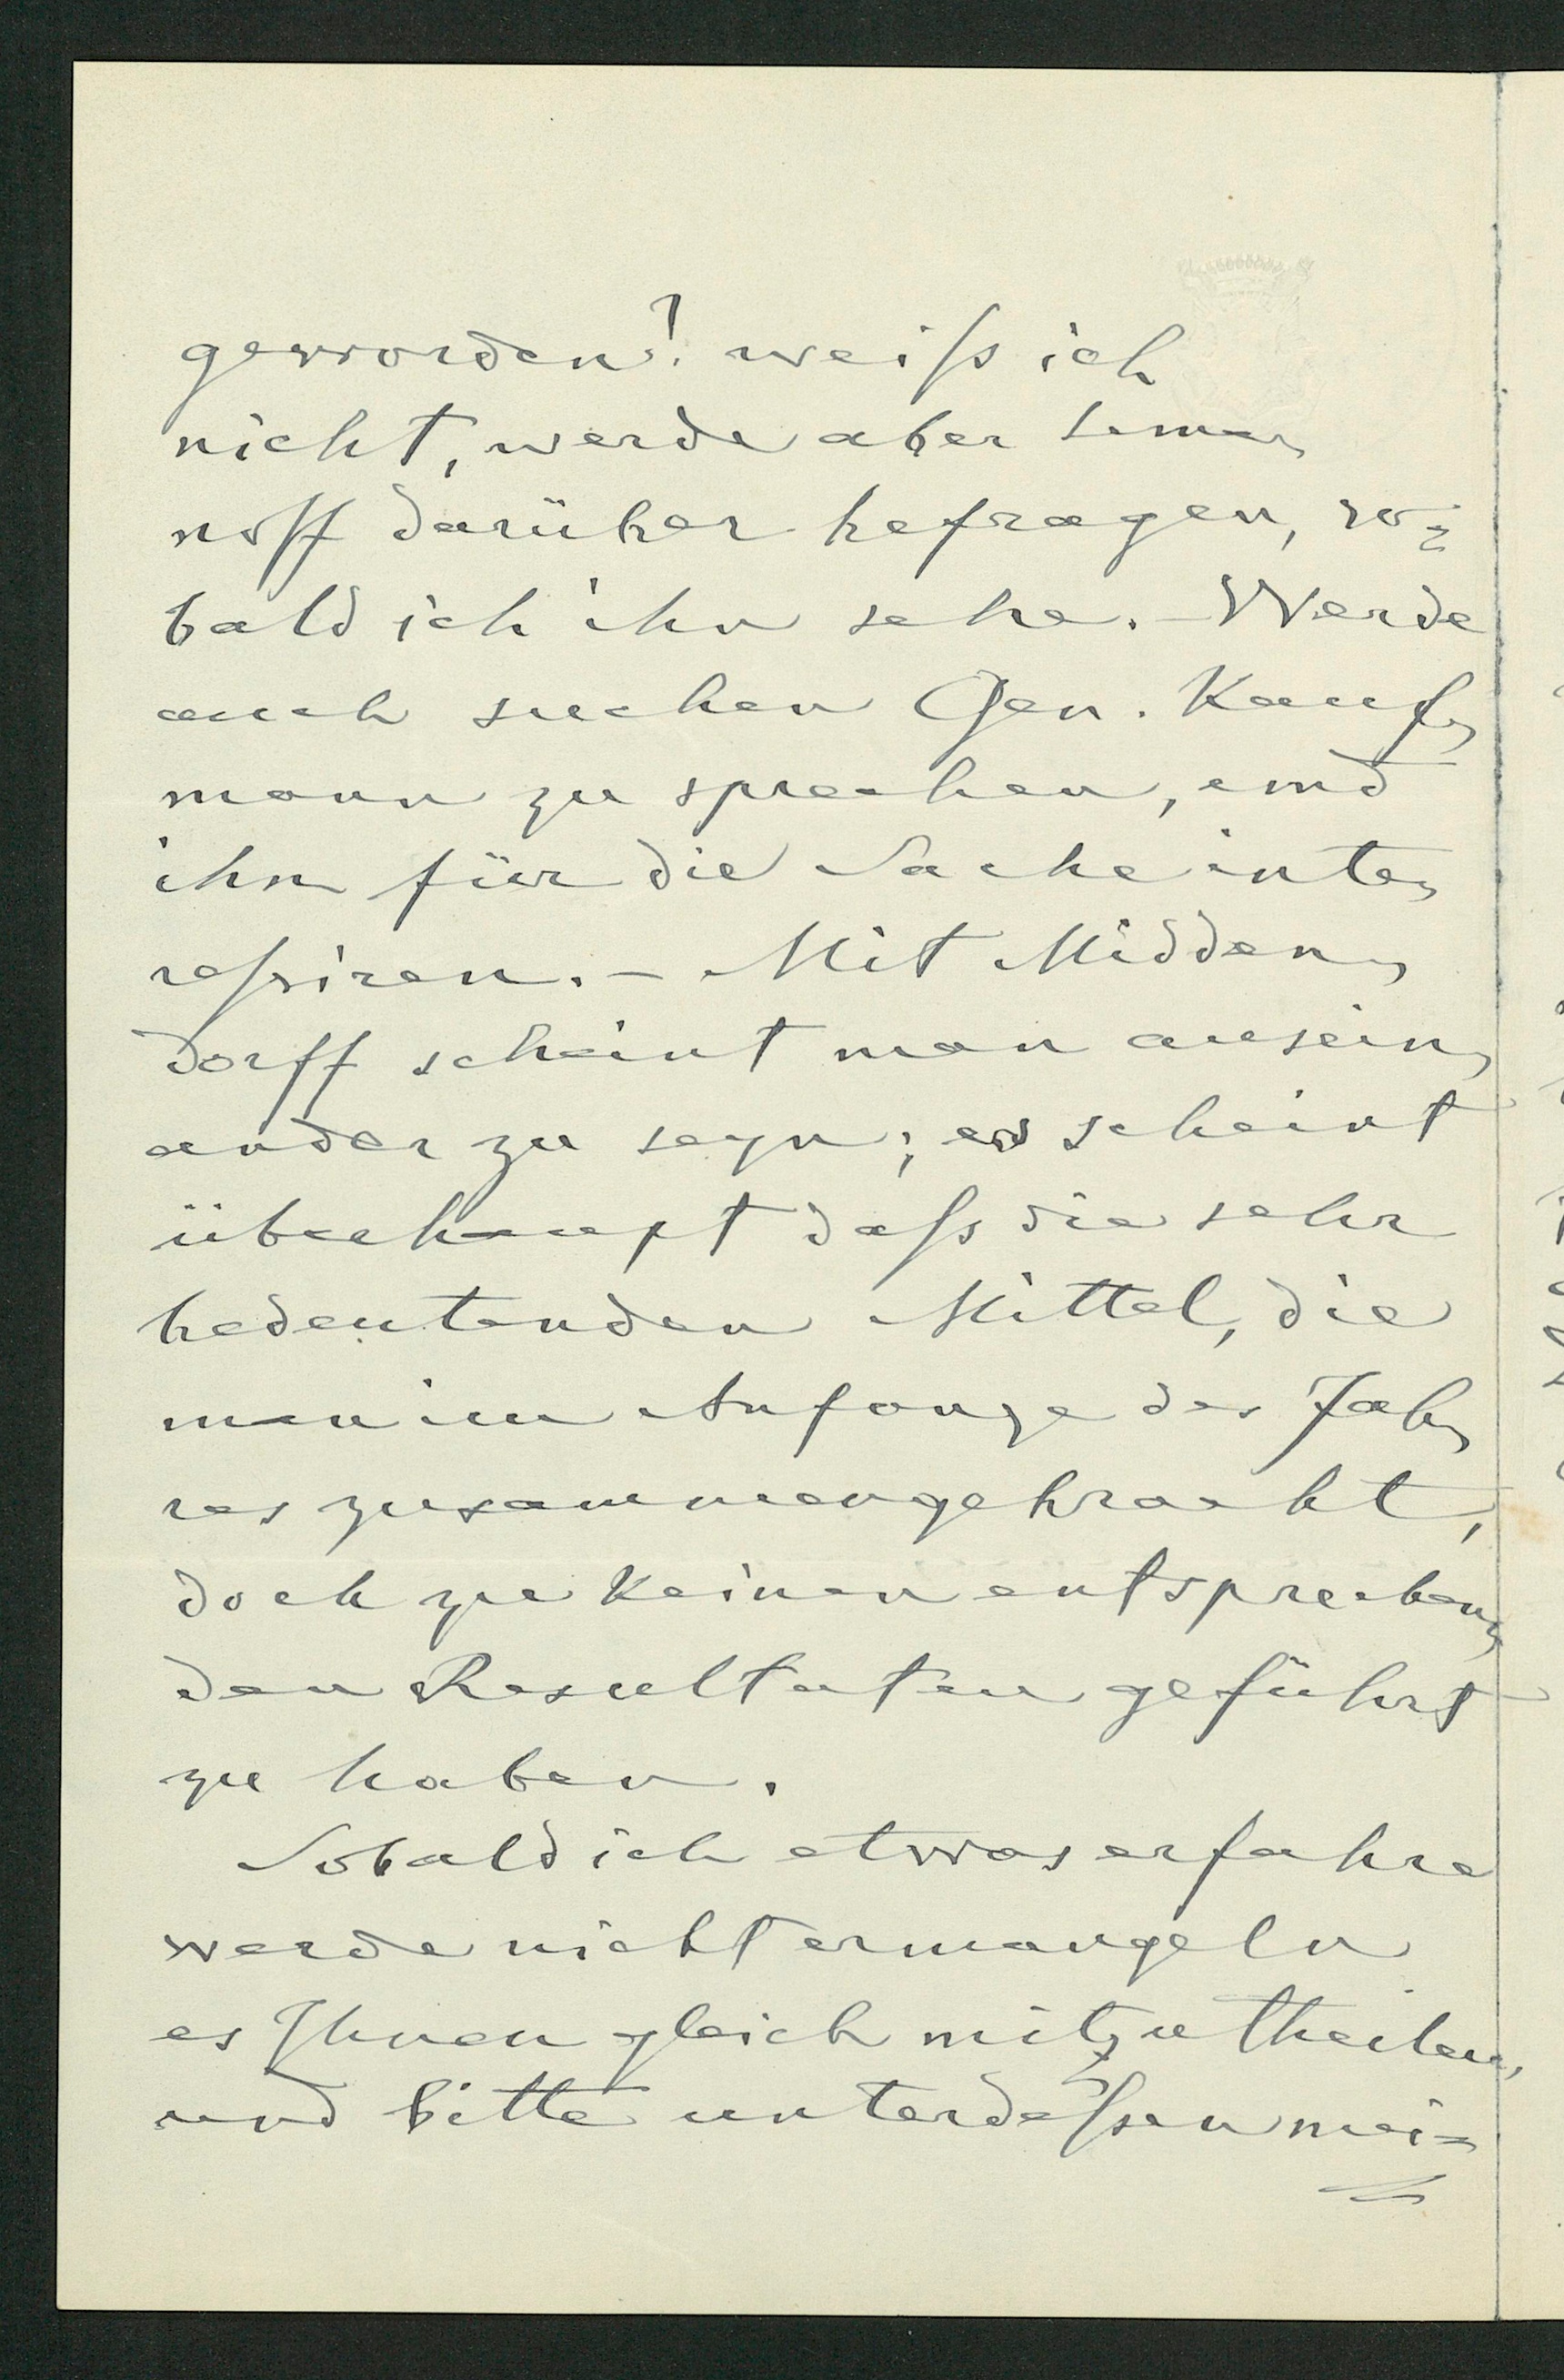 geworden? weiß ich
nicht, werde aber Seme-
noff darüber befragen, so-
bald ich ihn sehe. - Werde
auch suchen Gen. Kauf-
mann zu sprechen, und
ihn für die Sache inte-
reßiren. - Mit Midden-
dorff scheint man ausein-
ander zu seyn; es scheint
überhaupt daß die sehr
bedeutenden Mittel, die
man im Anfange des Jah-
res zusammengebracht,
doch zu keinen entsprechen-
den Resultaten geführt
zu haben.
Sobald ich etwas erfahre
werde nicht ermangeln
es Ihnen gleich mitzutheilen,
und bitte unterdeßen mei-